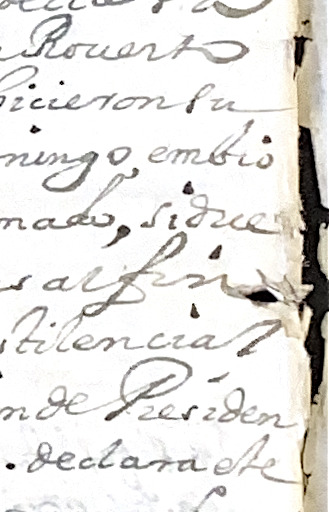 Rouert
hicieron su
mingo embio
mado, sidue
s al fin
stilencial
n de Presiden
. declara este